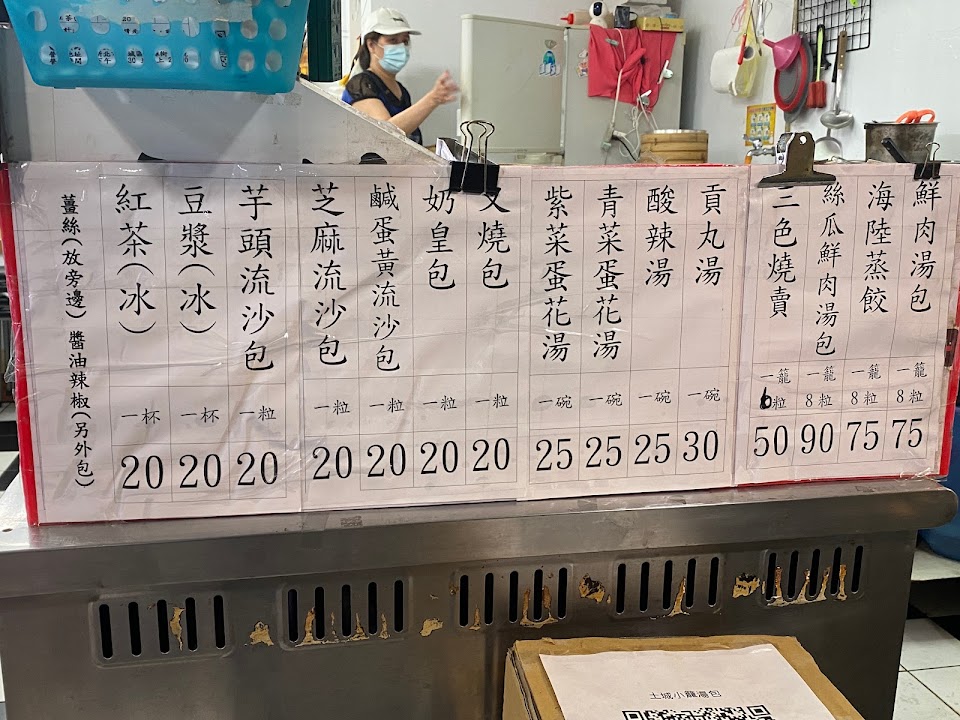 鮮肉湯包
一籠
8粒
75
海陸蒸餃
一籠
8粒
75
絲瓜鮮肉湯包
一籠
8粒
90
三色燒賣
一籠
6粒
50
貢丸湯
一碗
30
酸辣湯
一碗
25
青菜蛋花湯
一碗
25
紫菜蛋花湯
一碗
25
叉燒包
一粒
20
奶皇包
一粒
20
鹹蛋黃流沙包
一粒
20
芝麻流沙包
一粒
20
芋頭流沙包
一粒
20
豆漿(冰)
一杯
20
紅茶(冰)
一杯
20
薑絲(放旁邊) 醬油辣椒(另外包)
土城小籠湯包